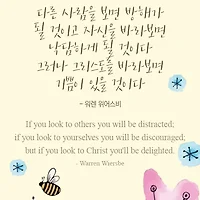 다른 사람을 보면 방해가
될 것이고 자신을 바라보면
낙담하게 될 것이다
그러나 그리스도를 바라보면
기쁨이 있을 것이다
- 워렌 위어스비
If you look to others you will be distracted;
if you look to yourselves you will be discouraged;
but if you look to Christ you'll be delighted.
- Warren Wiersbe